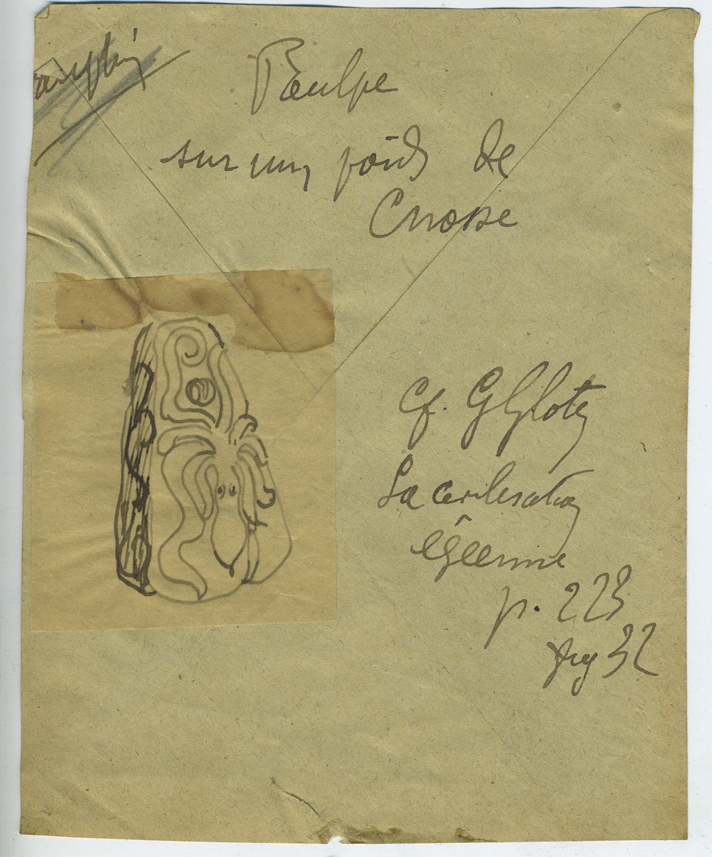 Poulpe
sur un poids de
Cnosse
Cf. G Glotz
La civilisation
égéenne
p. 223
fig 32